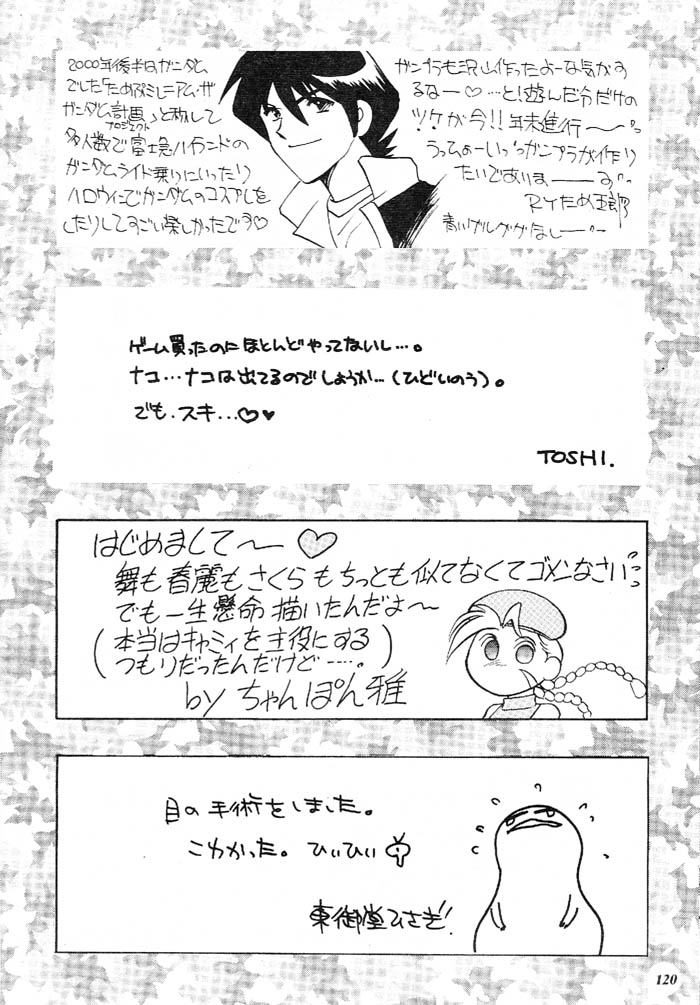 2000年後半はガンダム
でした「ためぷミレニアム・ザ
ガンダム計画」と称して
プロジェクト
多人数で富士急ハイランドの
ガンダムライド乗りにいったり
ハロウィンでガンダムのコスプレを
したりしてすごい楽しかったです♡
ガンプラも沢山作ったよーな気がす
るなー♡…と!遊んだ分だけの
ツケが今!!年末進行〜
うってぁーいっガンプラが作り
たいでありまーーす
RYため五郎
青いゲルググほしーー
ゲーム買ったのにほとんどやってないし…。
ナコ…ナコは出てるのでしょうか…(ひどいのう)。
でも、スキ…♡♥
TOSHI.
はじめまして〜♡
舞も春麗もさくらもちっとも似てなくてゴメンなさい
でも一生懸命描いたんだよ〜
(本当はキャミィを主役にする
つもりだったんだけど……。)
by ちゃんぽん雅
目の手術をしました。
こわかった。ひぃひぃ
東御堂ひさぎ!
120